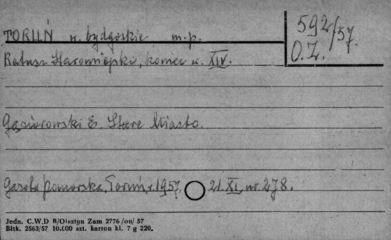 TORUŃ w. bydgoskie m.p.
592/57.
O.Z.
Ratusz Staromiejski, koniec w. XIV.
Gąsiorowski E. Stare Miasto.
Gazeta Pomorska, Toruń, 1957, 21.XI, nr. 278.
Jedn. C.W.D 8/Olsztyn Zam 2776 /on/ 57
Bltk. 2563/57 10.000 szt. karton kl. 7 g 220.